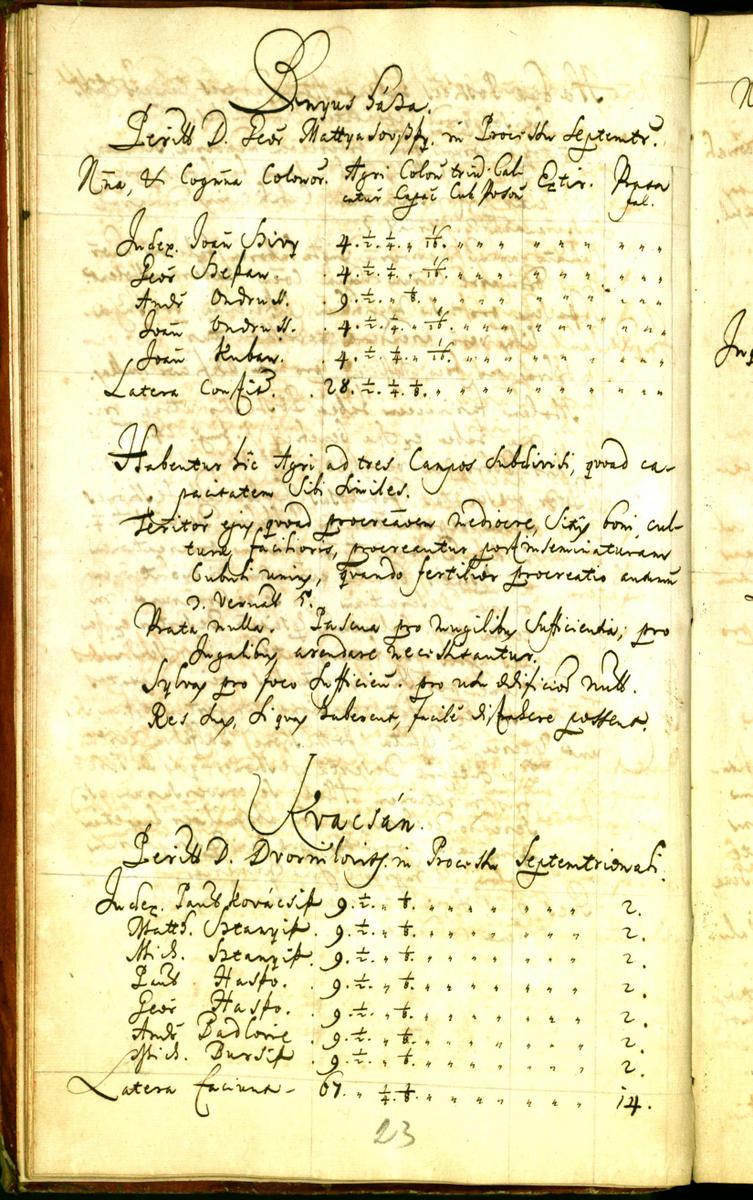 Benyus háza.
Perill D. Geör Mattyasovszky. in Processu Septemtr.
Nña, & Cognña Colonor. Agri Colon trid. Cal- Extir. Pensa
catur Capac Cub Poson fal.
Judex. Joañ Bivy 4. 1/2. 1/4. „ 1/16. „ „ „ „ „ „ „ „
Geör Stefan. 4. 1/2. 1/4. „ 1/16. „ „ „ „ „ „ „ „
Andr Ondrus. 9. 1/2. „ 1/8. „ „ „ „ „ „ „ „
Joañ Ondrus. 4. 1/2. 1/4. „ 1/16. „ „ „ „ „ „ „ „
Joañ Kuban. 4. 1/2. 1/4. „ 1/16. „ „ „ „ „ „ „ „
Latera Confic. 28. 1/2. 1/4. 1/8. „ „ „ „ „ „ „ „
Habentur hic Agri ad tres Campos subdivisi, qvoad ca-
pacitatem sibi similes.
Territor ejus qvoad procreaõem mediocre, sitûs boni, cul-
turæ facilioris, procreantur post inseminaturam
Cubuli unius, qvando fertilior procreatio autumn
3. Vernal 5.
Prata nulla. Pascua pro mugilibus sufficientia; pro
Jugalibus arendare necissitantur.
Sylvas pro foco sufficien. pro usu ædificior null.
Res suas, si qvas haberent, facilè distrahere possent.
Kvacsán.
Perill D. Dvornikovits. in Processu Septemtrionali.
Judex. Paul Kovácsik 9. 1/2. „ 1/8. „ „ „ „ „ „ „ 2.
Matth. Sztanyik. 9. 1/2. „ 1/8. „ „ „ „ „ „ „ 2.
Mich. Sztanyik. 9. 1/2. „ 1/8. „ „ „ „ „ „ „ 2.
Paul Hasko. 9. 1/2. „ 1/8. „ „ „ „ „ „ „ 2.
Geör Hasko. 9. 1/2. „ 1/8. „ „ „ „ „ „ „ 2.
Andr Badlovic 9. 1/2. „ 1/8. „ „ „ „ „ „ „ 2.
Mich. Bursik 9. 1/2. „ 1/8. „ „ „ „ „ „ „ 2.
Latera faciunt 67. „ 1/4. 1/8. „ „ „ „ „ „ „ 14.
23